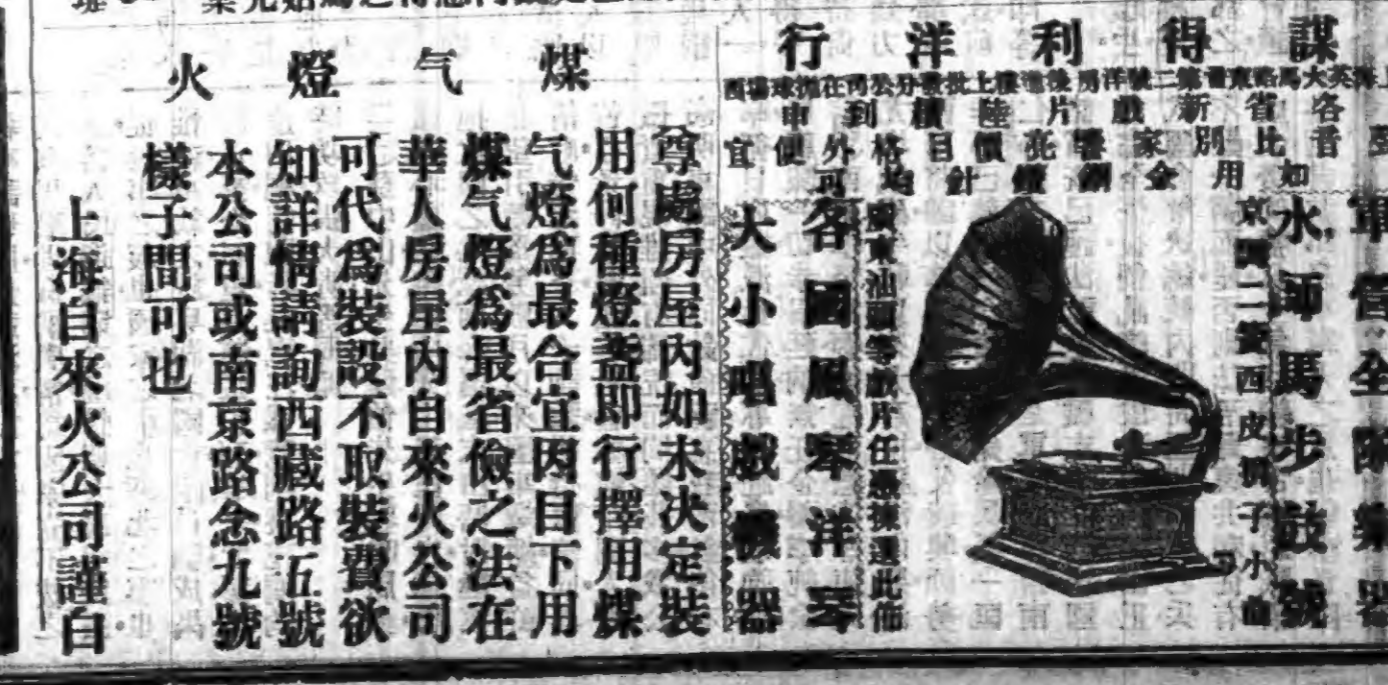 謀得利洋行
英大馬路東首第二號洋房後進樓上批發分公司在抛球場西
各省新戲片陸續到申
音比別家響亮價目格外便宜
如用金鋼鑽針均可
軍管全隊樂器
水師馬步鼓號
京調二簧西皮梆子小曲
廣東汕頭等戲片任憑揀選此佈
各國風琴洋琴
大小唱戲機器
煤气燈火
尊處房屋內如未决定裝
用何種燈盞即行擇用煤
气燈爲最合宜因目下用
煤气燈爲最省儉之法在
華人房屋內自來火公司
可代爲裝設不取裝費欲
知詳情請詢西藏路五號
本公司或南京路念九號
樣子間可也
上海自來火公司謹白